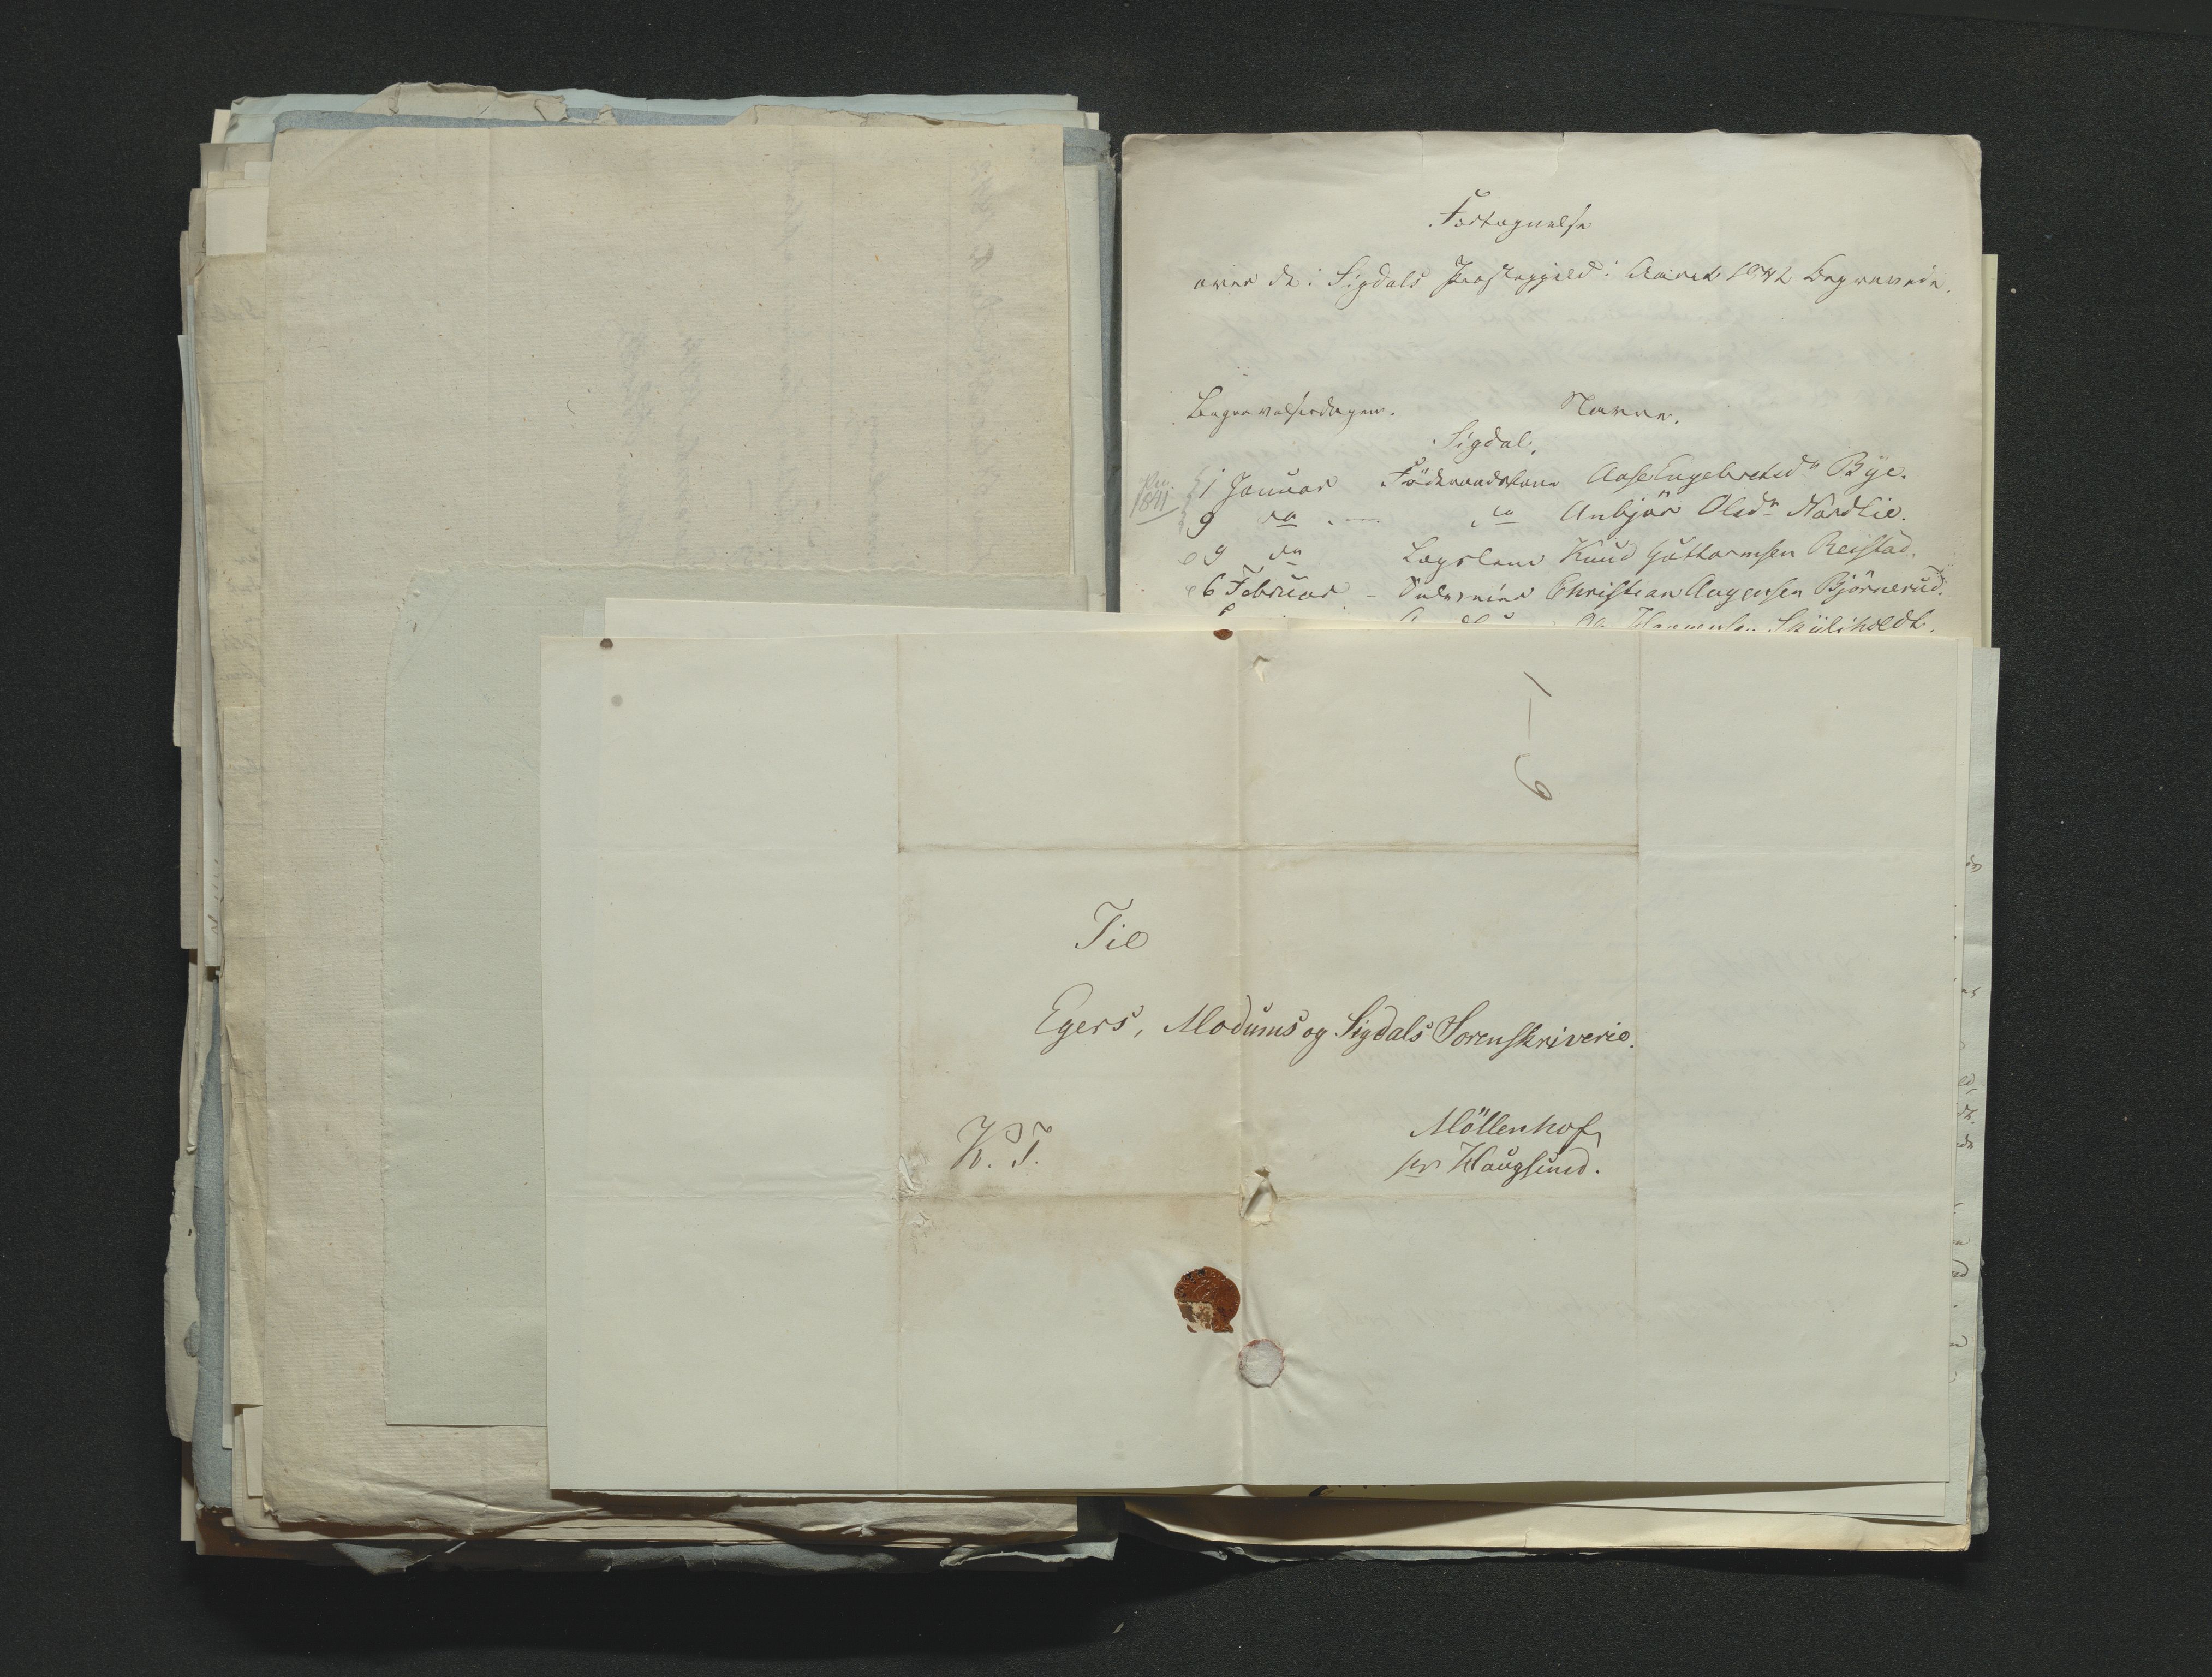 Fortegnelse
over de i Sigdals Præstegjeld i Aaret 1842 Begravede.
Begravelsesdagen. Navne.
Sigdal.
1841
1 Januar Föderaadskone Aase Engebretsdn Bye.
9 do — do Anbjör Olsdn Nordlie.
9 do Lægslem Knud Guttormsen Reistad.
6 Februar - Christian Aagensen Björnerud.
Skuliholdt.
1 — 6
Til
Egers, Modums og Sigdals Sorenskriverie.
K. T.
Möllenhof
pr Haugsund.